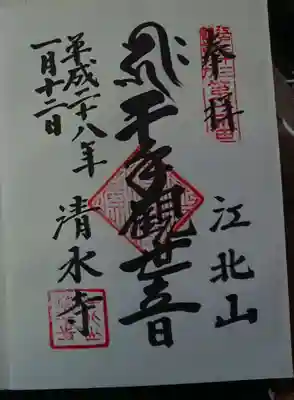 奉拝
江北山
千手観世音
清水寺
平成二十八年
一月十二日